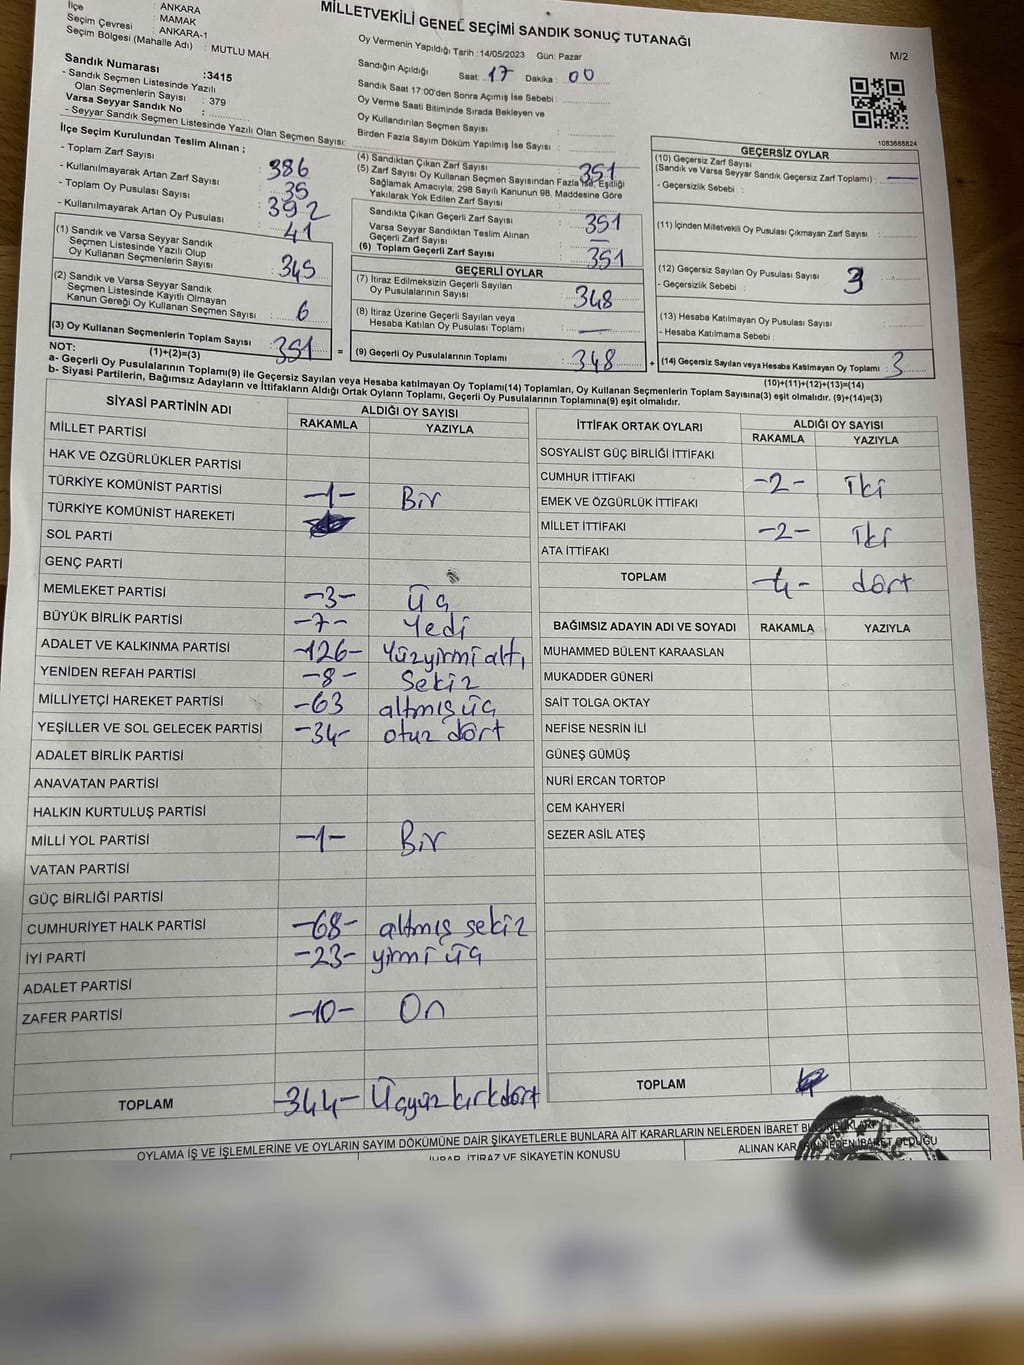 MİLLETVEKİLİ GENEL SEÇİMİ SANDIK SONUÇ TUTANAĞI
M/2
İlçe : ANKARA
Seçim Çevresi : MAMAK
Seçim Bölgesi (Mahalle Adı) : ANKARA-1
: MUTLU MAH.
Sandık Numarası :3415
- Sandık Seçmen Listesinde Yazılı
Olan Seçmenlerin Sayısı : 379
Varsa Seyyar Sandık No :
- Seyyar Sandık Seçmen Listesinde Yazılı Olan Seçmen Sayısı:
Oy Vermenin Yapıldığı Tarih : 14/05/2023 Gün: Pazar
Sandığın Açıldığı Saat: 17 Dakika : 00
Sandık Saat 17:00'den Sonra Açımış İse Sebebi :
Oy Verme Saati Bitiminde Sırada Bekleyen ve
Oy Kullandırılan Seçmen Sayısı :
Birden Fazla Sayım Döküm Yapılmış İse Sayısı :
1083688824
İlçe Seçim Kurulundan Teslim Alınan ;
- Toplam Zarf Sayısı : 386
- Kullanılmayarak Artan Zarf Sayısı : 35
- Toplam Oy Pusulası Sayısı : 392
- Kullanılmayarak Artan Oy Pusulası : 41
(1) Sandık ve Varsa Seyyar Sandık
Seçmen Listesinde Yazılı Olup
Oy Kullanan Seçmenlerin Sayısı : 345
(2) Sandık ve Varsa Seyyar Sandık
Seçmen Listesinde Kayıtlı Olmayan
Kanun Gereği Oy Kullanan Seçmen Sayısı : 6
(3) Oy Kullanan Seçmenlerin Toplam Sayısı : 351 =
(1)+(2)=(3)
(4) Sandıktan Çıkan Zarf Sayısı : 351
(5) Zarf Sayısı Oy Kullanan Seçmen Sayısından Fazla İse, Eşitliği
Sağlamak Amacıyla, 298 Sayılı Kanunun 98. Maddesine Göre
Yakılarak Yok Edilen Zarf Sayısı :
Sandıkta Çıkan Geçerli Zarf Sayısı : 351
Varsa Seyyar Sandıktan Teslim Alınan
Geçerli Zarf Sayısı : —
(6) Toplam Geçerli Zarf Sayısı : 351
GEÇERLİ OYLAR
(7) İtiraz Edilmeksizin Geçerli Sayılan
Oy Pusulalarının Sayısı : 348
(8) İtiraz Üzerine Geçerli Sayılan veya
Hesaba Katılan Oy Pusulası Toplamı : —
(9) Geçerli Oy Pusulalarının Toplamı : 348 +
GEÇERSİZ OYLAR
(10) Geçersiz Zarf Sayısı
(Sandık ve Varsa Seyyar Sandık Geçersiz Zarf Toplamı) : —
- Geçersizlik Sebebi :
(11) İçinden Milletvekili Oy Pusulası Çıkmayan Zarf Sayısı :
(12) Geçersiz Sayılan Oy Pusulası Sayısı : 3
- Geçersizlik Sebebi :
(13) Hesaba Katılmayan Oy Pusulası Sayısı :
- Hesaba Katılmama Sebebi :
(14) Geçersiz Sayılan veya Hesaba Katılmayan Oy Toplamı : 3
(10)+(11)+(12)+(13)=(14)
NOT:
a- Geçerli Oy Pusulalarının Toplamı(9) ile Geçersiz Sayılan veya Hesaba katılmayan Oy Toplamı(14) Toplamları, Oy Kullanan Seçmenlerin Toplam Sayısına(3) eşit olmalıdır. (9)+(14)=(3)
b- Siyasi Partilerin, Bağımsız Adayların ve İttifakların Aldığı Ortak Oyların Toplamı, Geçerli Oy Pusulalarının Toplamına(9) eşit olmalıdır.
SİYASİ PARTİNİN ADI ALDIĞI OY SAYISI
RAKAMLA YAZIYLA
MİLLET PARTİSİ
HAK VE ÖZGÜRLÜKLER PARTİSİ
TÜRKİYE KOMÜNİST PARTİSİ -1- Bir
TÜRKİYE KOMÜNİST HAREKETİ
SOL PARTİ
GENÇ PARTİ
MEMLEKET PARTİSİ -3- Üç
BÜYÜK BİRLİK PARTİSİ -7- Yedi
ADALET VE KALKINMA PARTİSİ -126- Yüzyirmi altı
YENİDEN REFAH PARTİSİ -8- Sekiz
MİLLİYETÇİ HAREKET PARTİSİ -63 altmış üç
YEŞİLLER VE SOL GELECEK PARTİSİ -34- otuz dört
ADALET BİRLİK PARTİSİ
ANAVATAN PARTİSİ
HALKIN KURTULUŞ PARTİSİ
MİLLİ YOL PARTİSİ -1- Bir
VATAN PARTİSİ
GÜÇ BİRLİĞİ PARTİSİ
CUMHURİYET HALK PARTİSİ -68- altmış sekiz
İYİ PARTİ -23- yirmi üç
ADALET PARTİSİ
ZAFER PARTİSİ -10- On
TOPLAM -344- Üçyüz kırkdört
İTTİFAK ORTAK OYLARI ALDIĞI OY SAYISI
RAKAMLA YAZIYLA
SOSYALİST GÜÇ BİRLİĞİ İTTİFAKI
CUMHUR İTTİFAKI -2- İki
EMEK VE ÖZGÜRLÜK İTTİFAKI
MİLLET İTTİFAKI -2- İki
ATA İTTİFAKI
TOPLAM -4- dört
BAĞIMSIZ ADAYIN ADI VE SOYADI RAKAMLA YAZIYLA
MUHAMMED BÜLENT KARAASLAN
MUKADDER GÜNERİ
SAİT TOLGA OKTAY
NEFİSE NESRİN İLİ
GÜNEŞ GÜMÜŞ
NURİ ERCAN TORTOP
CEM KAHYERİ
SEZER ASİL ATEŞ
TOPLAM
OYLAMA İŞ VE İŞLEMLERİNE VE OYLARIN SAYIM DÖKÜMÜNE DAİR ŞİKAYETLERLE BUNLARA AİT KARARLARIN NELERDEN İBARET BULUNDUKLARI
İHBAR, İTİRAZ VE ŞİKAYETİN KONUSU
ALINAN KARARIN NEDEN İBARET OLDUĞU